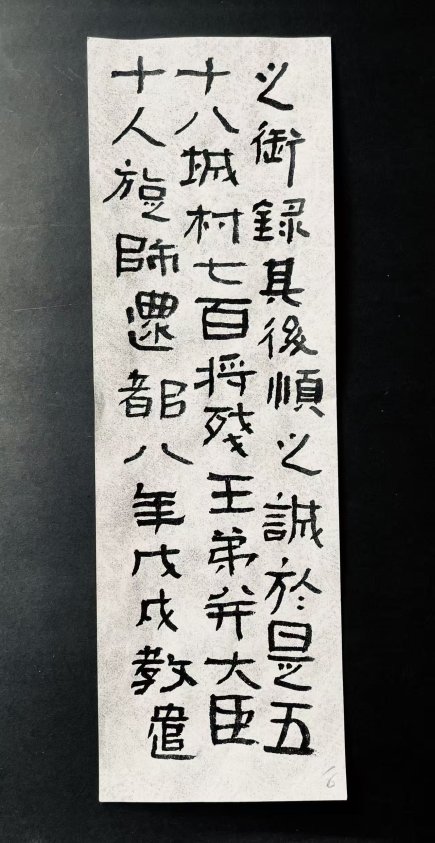 之御録其後順之誠於是五
十八城村七百将残王弟并大臣
十人旋師還都八年戊戌教遣